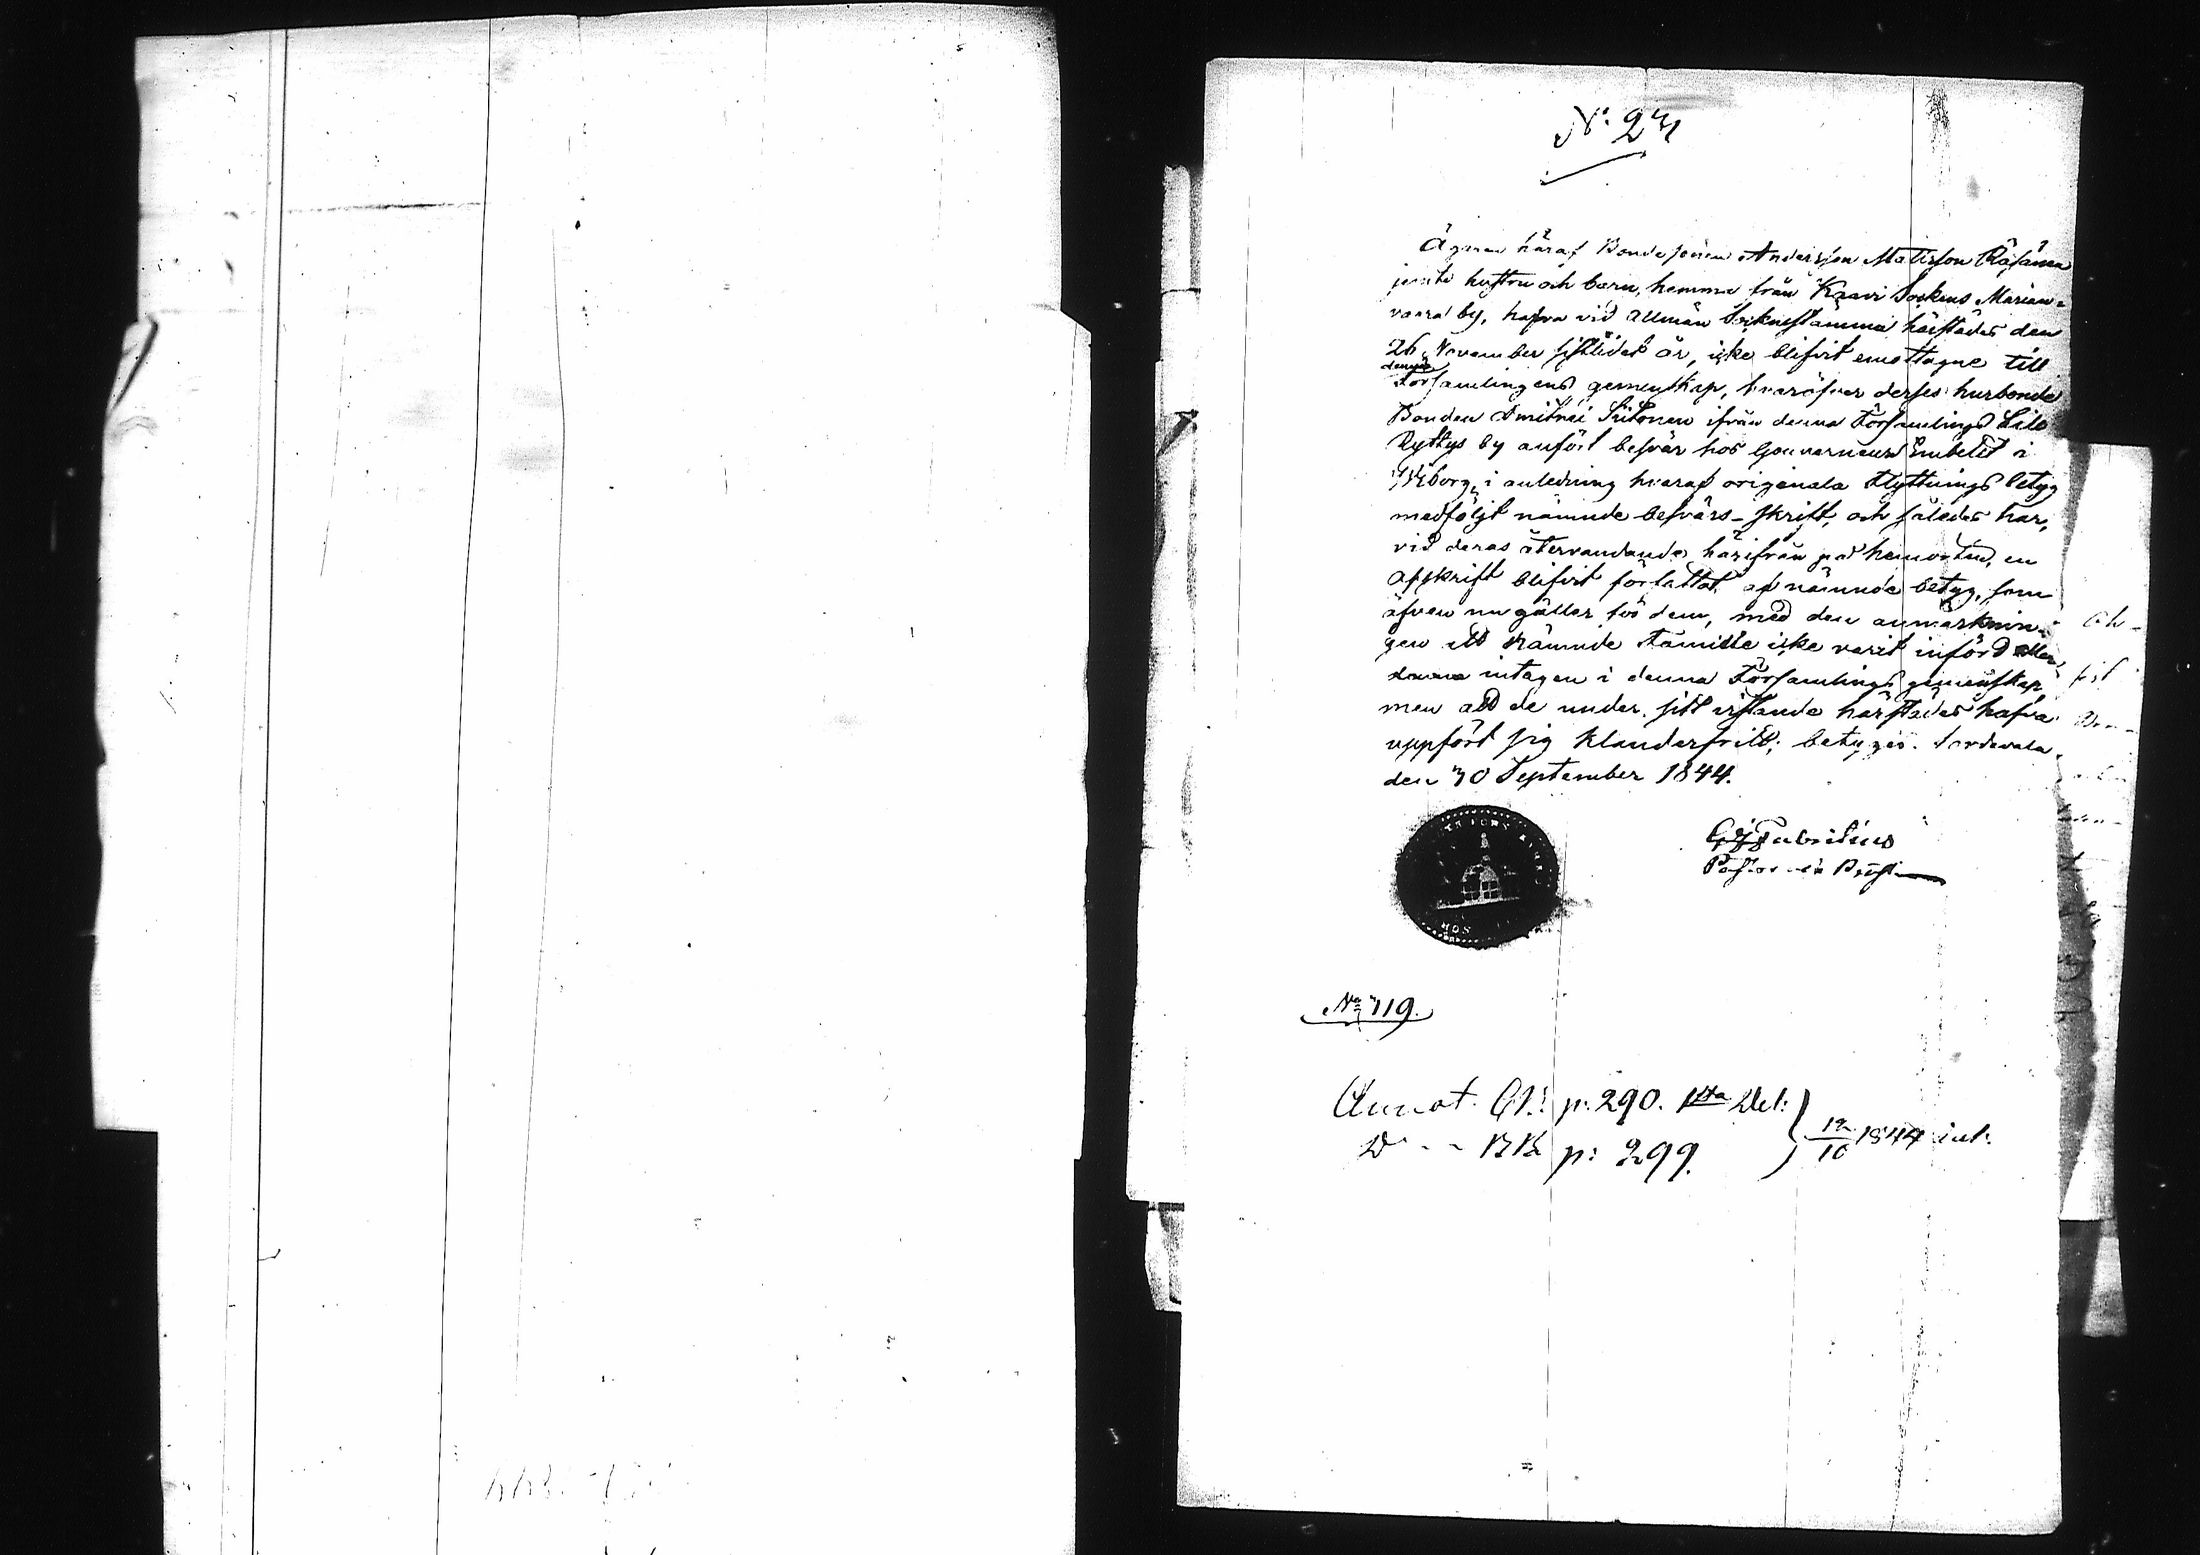 N: 23
Ägaren häraf Bondesonen Andersson Matisson Räsänen
jemte hustru och barn, hemma från Kaavi Sockens Marian-
vaara by, hafva vid allmän Sockenstämma härstädes den
26 November sistlidet år, icke blifvit emottagne till
denna
Församlingens gemenskap, hvaröfver derses husbonde
Bonden Dmitrei Siitonen ifrån denna Församlings
Ryttys by anfört besvär hos Gouverneurs Embetet i
Wiborg, i anledning hvaraf originala Flyttnings betyg
medföljt nämnde besvärs-skrift, och således har,
vid deras återvandande härifrån på hemorten, en
afskrift blifvit författat af nämnde betyg, som
äfven nu gäller för dem, med den anmärknin-
gen att nämnde Familie icke varit införd eller
intagen i denna Församlings gemenskap,
men att de under sitt vistande härstädes hafva
uppfört sig klanderfritt; betygas. Sordavala
den 30 September 1844.
Fabritius
Pastor och Prost
No 319.
Annot. Cl: p: 290. 1sta Del:
D - - BB p: 299.
12/10 1844 int: